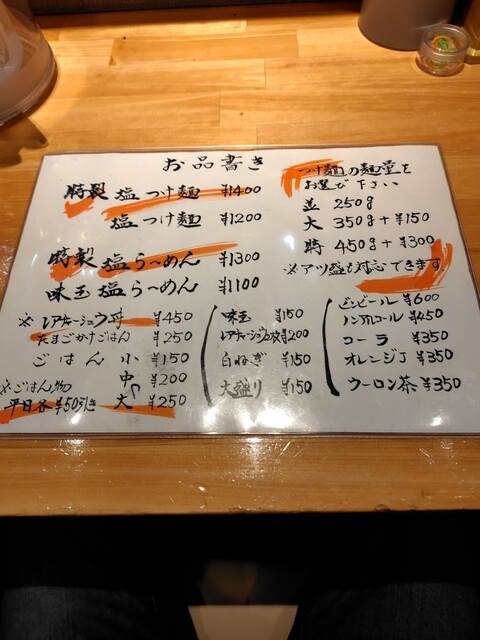 お品書き
特製 塩つけ麺 ¥1400
塩つけ麺 ¥1200
特製 塩ら〜めん ¥1300
味玉塩ら〜めん ¥1100
※レアチャーシュウ丼 ¥450
たまごかけごはん ¥250
ごはん 小 ¥150
中 ¥200
大 ¥250
※ごはん物
平日各¥50引き
味玉 ¥150
レアチャーシュウ2枚 ¥200
白ねぎ ¥150
大盛り ¥150
つけ麺の麺量を
お選び下さい
並 250g
大 350g+¥150
特 450g+¥300
※アツ盛も対応できます
ビンビール ¥600
ノンアルコール ¥450
コーラ ¥350
オレンジJ ¥350
ウーロン茶 ¥350